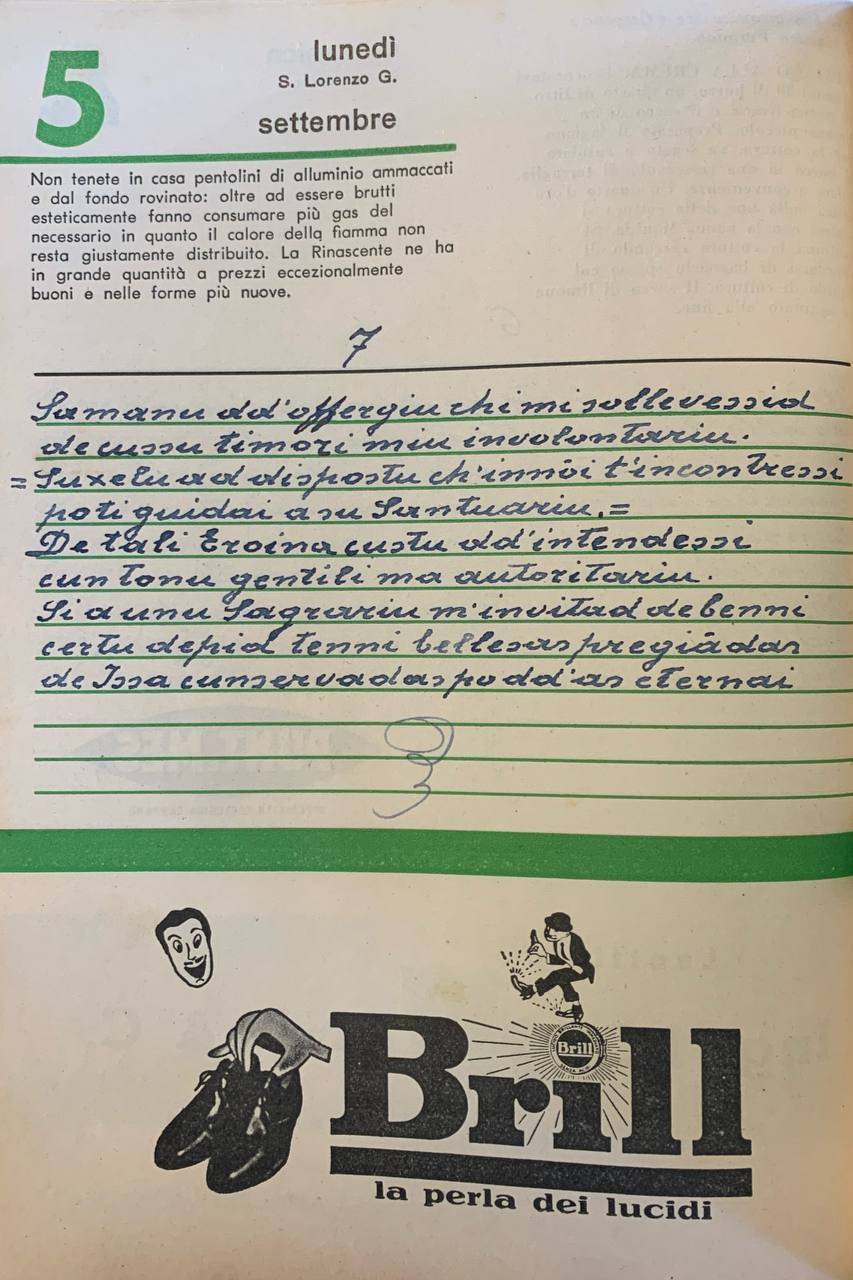 5
lunedì
S. Lorenzo G.
settembre
Non tenete in casa pentolini di alluminio ammaccati
e dal fondo rovinato: oltre ad essere brutti
esteticamente fanno consumare più gas del
necessario in quanto il calore della fiamma non
resta giustamente distribuito. La Rinascente ne ha
in grande quantità a prezzi eccezionalmente
buoni e nelle forme più nuove.
7
Sa manu dd'offergiu chi mi sollevessid
de cussu timori miu involontariu.
= Su xelu ad dispostu ch'innòi t'incontressi
po ti guidai a su Santuariu. =
De tali Eroina custu dd'intendessi
cun tonu gentili ma autoritariu.
Si a unu Sagrariu m'invitad de benni
certu depid tenni bellesas pregiàdas
de Issa cunservadas po dd'as eternai
Brill
Brill
la perla dei lucidi